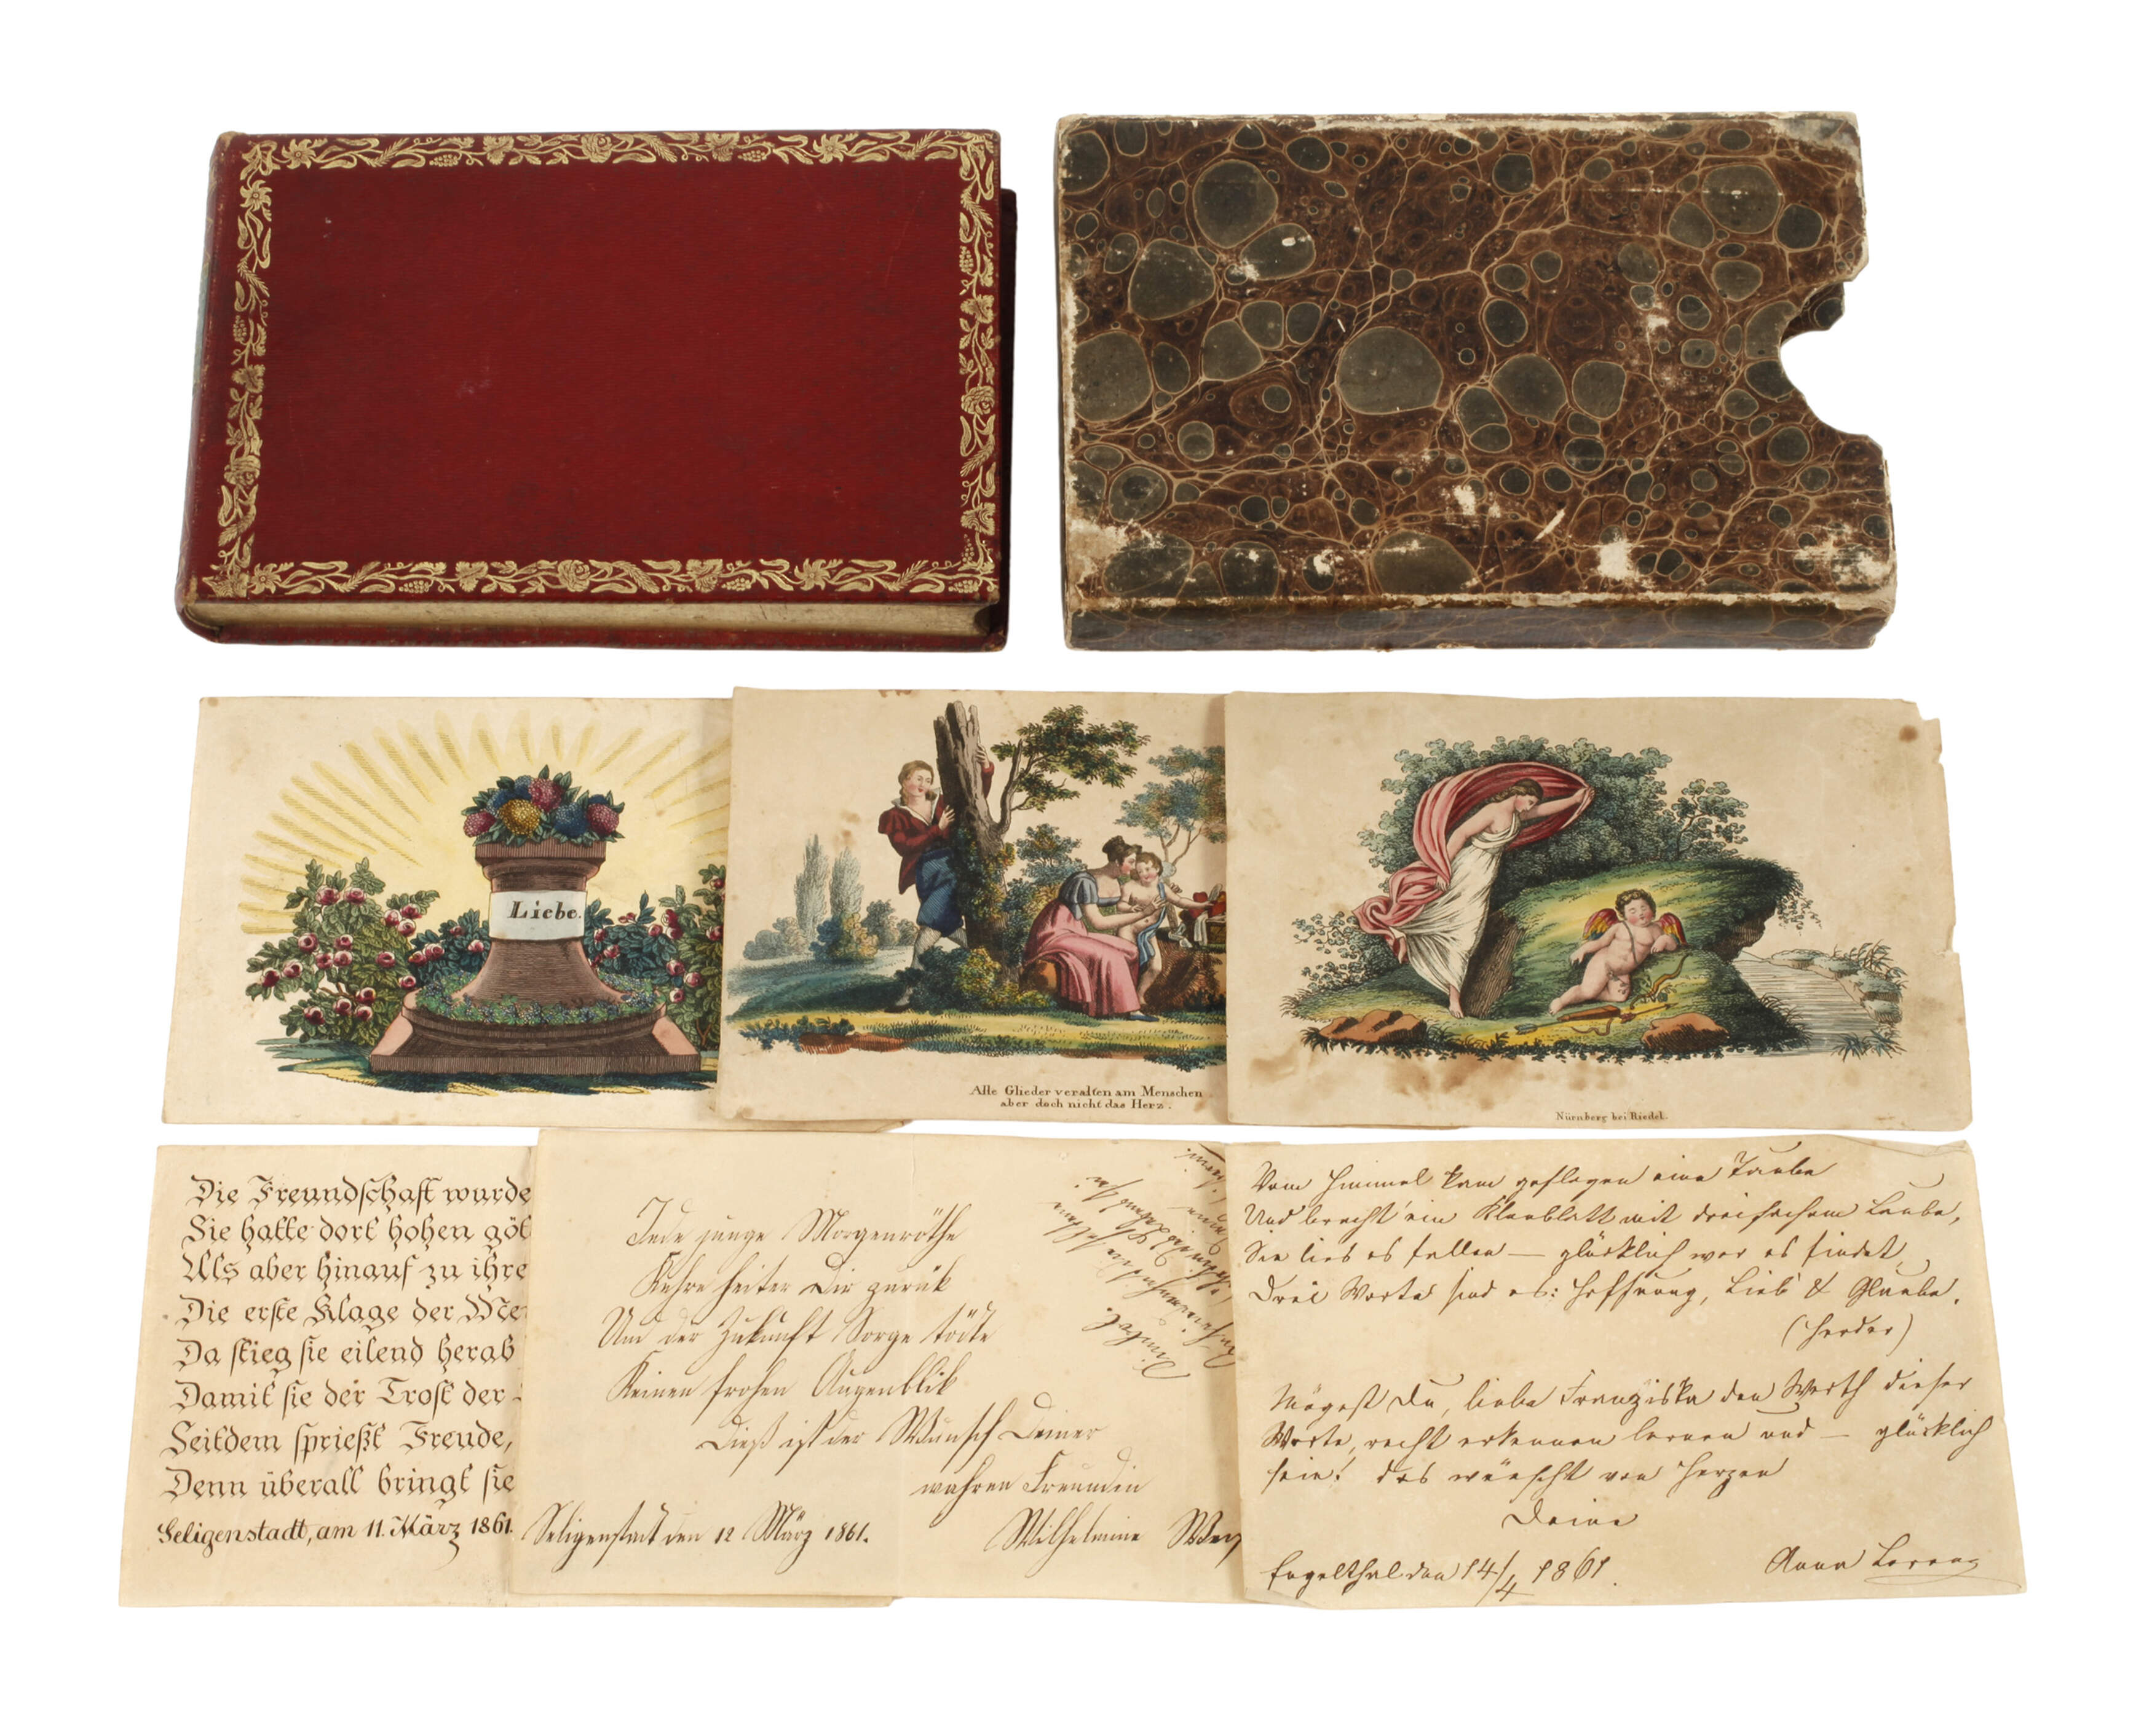 Liebe.
Alle Glieder veralten am Menschen
aber doch nicht das Herz.
Nürnberg bei Riedel.
Die Freundschaft wurde
Sie hatte dort hohen göt
Als aber hinauf zu ihre
Die erste Klage der Me
Da stieg sie eilend herab
Damit sie der Trost der
Seitdem sprießt Freude,
Denn überall bringt sie
Seligenstadt, am 11. März 1861.
Jede junge Morgenröthe
Kehre heiter Dir zurük
Und der Zukunft Sorge tödte
Keinen frohen Augenblik
Dieß ist der Wunsch Deiner
wahren Freundin
Seligenstadt den 12 März 1861.
Wilhelmine
Vom Himmel kam geflogen eine Taube
Und bracht' ein Kleeblatt mit dreifachem Laube,
Sie ließ es fallen — glücklich wer es findet,
Drei Worte sind es: Hoffnung, Lieb' & Glaube.
(Herder)
Mögest Du, liebe Franziska den Werth dieser
Worte, recht erkennen lernen und — glücklich
sein! das wünscht von Herzen
Deine
Anna
Engelthal den 14/4 1861.